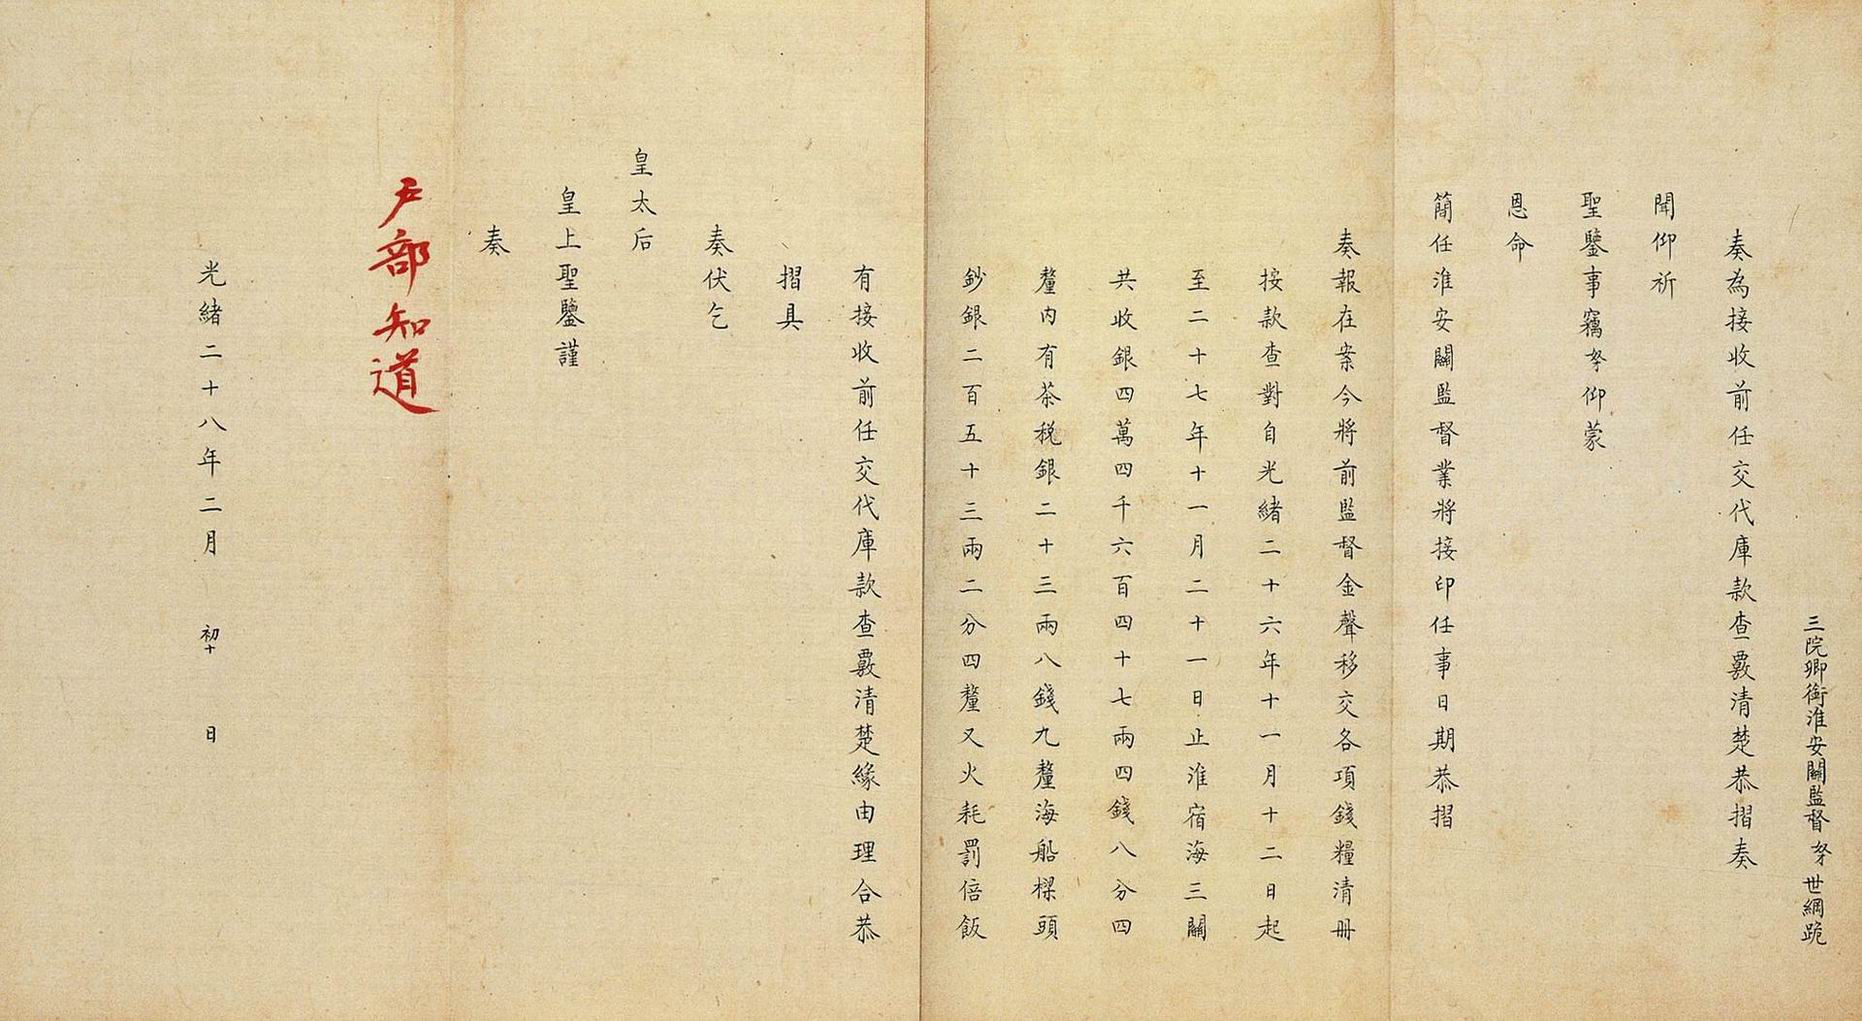 三院卿銜淮安關監督奴世綱跪
奏為接收前任交代庫款查覈清楚恭摺奏
聞仰祈
聖鑒事竊奴仰蒙
恩命
簡任淮安關監督業將接印任事日期恭摺
奏報在案今將前監督金聲移交各項錢糧清冊
按款查對自光緒二十六年十一月十二日起
至二十七年十一月二十一日止淮宿海三關
共收銀四萬四千六百四十七兩四錢八分四
釐內有茶稅銀二十三兩八錢九釐海船樑頭
鈔銀二百五十三兩二分四釐又火耗罰倍飯
有接收前任交代庫款查覈清楚緣由理合恭
摺具
奏伏乞
皇太后
皇上聖鑒謹
奏
戶部知道
光緒二十八年二月初十日